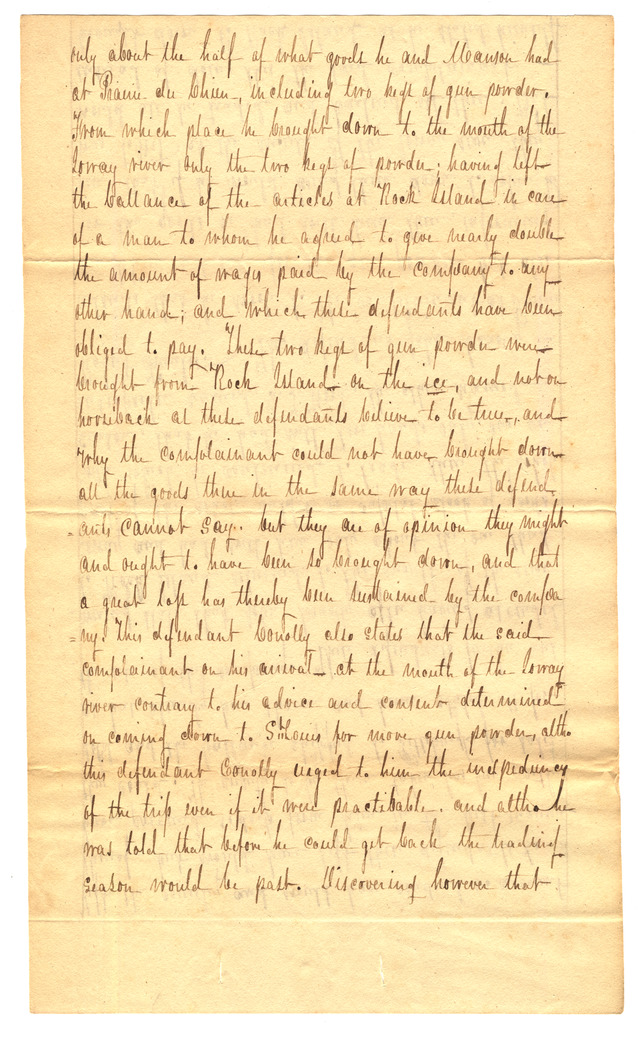 only about the half of what goods he and Manson had
at Prairie du Chien, including two kegs of gun powder.
From which place he brought down to the mouth of the
Ioway river only the two kegs of powder; having left
the ballance of the articles at Rock Island in care
of a man to whom he agreed to give nearly double
the amount of wages paid by the company to any
other hand; and which these defendants have been
obliged to pay. These two kegs of gun powder were
brought from Rock Island on the ice, and not on
horseback as these defendants believe to be true, and
why the complainant could not have brought down
all the goods thus in the same way these defend
=ants cannot say. but they are of opinion they might
and ought to have been so brought down, and that
a great loss has thereby been sustained by the compa
=ny. This defendant Conolly also states that the said
complainant on his arrival at the mouth of the Ioway
river contrary to his advice and consent determined
on coming down to St Louis for more gun powder, altho
this defendant Conolly urged to him the inexpediency
of the trip even if it were practikable. and altho he
was told that before he could get back the trading
season would be past. Discovering however that